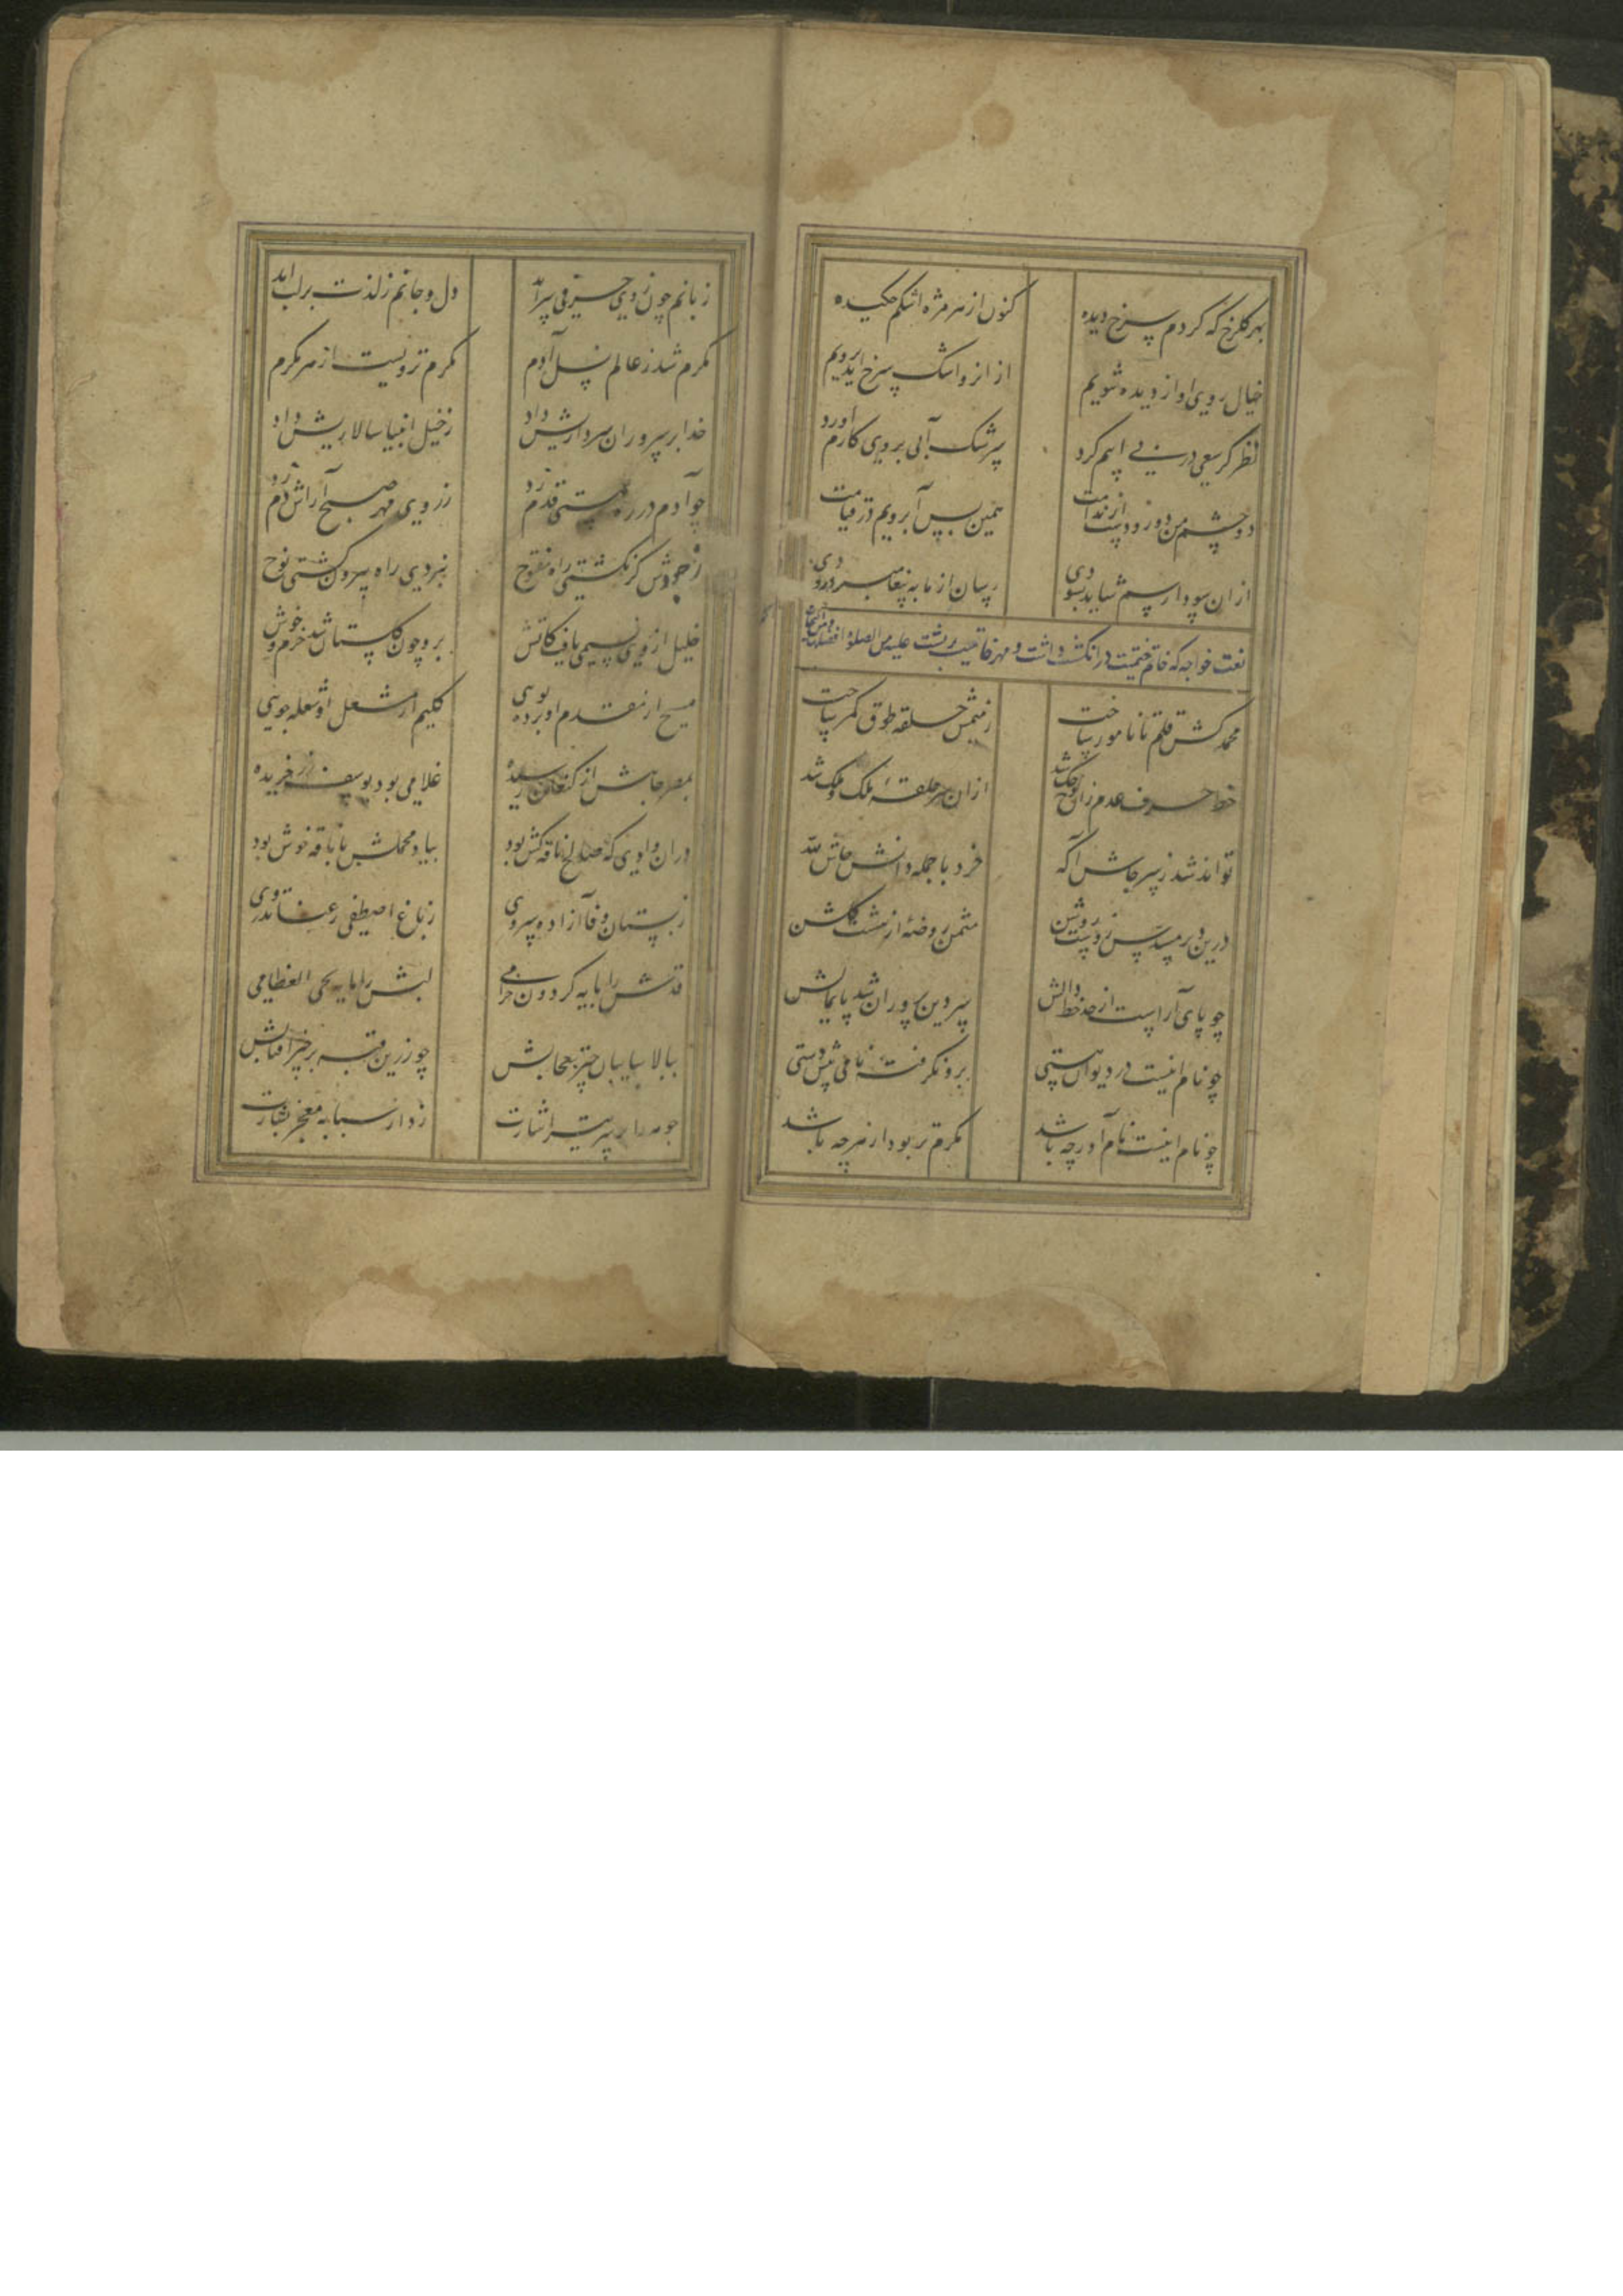 بهر گلرخ که کردم سرخ دیده کنون از هر مژه اشکم چکیده
خیال روی او از دیده شویم ازانرو اشک سرخ اید برویم
نظر کر سعی در بی ابیم کرد سرشک آبی بروی کارم اورد
دو چشم من دو رودست از ندامت همین بس آبرویم در قیامت
ازان سودا رسم شاید بسودی رسان از ما به پیغامبر درودی
نعت خواجه که خاتم ختمیت در انکشت داشت و مهر خاتمیت بر پشت علیه من الصلوة افضلها
محمد کش قلم تا نامور ساخت ز میمش حلقه طوق کمر ساخت
خط حرف عدم زان لوح حک شد ازان سر حلقهٔ ملک و ملک شد
تواند شد ز سر حاش آکه خرد با جمله دانش حاش لله
درین دیر مسدس زوست روشن مثمن روضهٔ از هشت کلشن
چو پای آراست از خلخال دالش سر دین پروران شد پایمالش
چو نام اینست در دیوان هستی برو نکرفته نامی پیش دستی
چو نام اینست نام آور چه باشد مکرم تر بود از هر چه باشد
زبانم چون ز وی حرفی سراید دل و جانم ز لذت بر لب اید
مکرم شد ز عالم نسل آدم مکرم تر ویست از هر مکرم
خدا بر سروران سرداریش داد ز خیل انبیا سالاریش داد
چو آدم در ره هستی قدم زد ز روی مهر صبح آراش دم زد
ز جودش کر نکشتی راه مفتوح نبردی راه بیرون کشتی نوح
خلیل از وی نسیمی یافت کاتش برو چون کلستان شد خرم و خوش
مسیح از مقدم او برده بویی کلیم از مشعل او شعله جویی
بمصر جاهش از کنعان رسیده غلامی بود یوسف زر خریده
دران وادی که صالح ناقه کش بود بیاد محملش با ناقه خوش بود
ز بستان وفا آزاده سروی ز باغ اصطفی رعنا تذروی
قدش را پایه کردون خرامی لبش را مایه یحی العظامی
ببالا سایبان چتر سحابش چو زرین قبه بر چتر آفتابش
چو مه را بر سپر تیر اشارت زد از سبابهٔ معجز بشارت